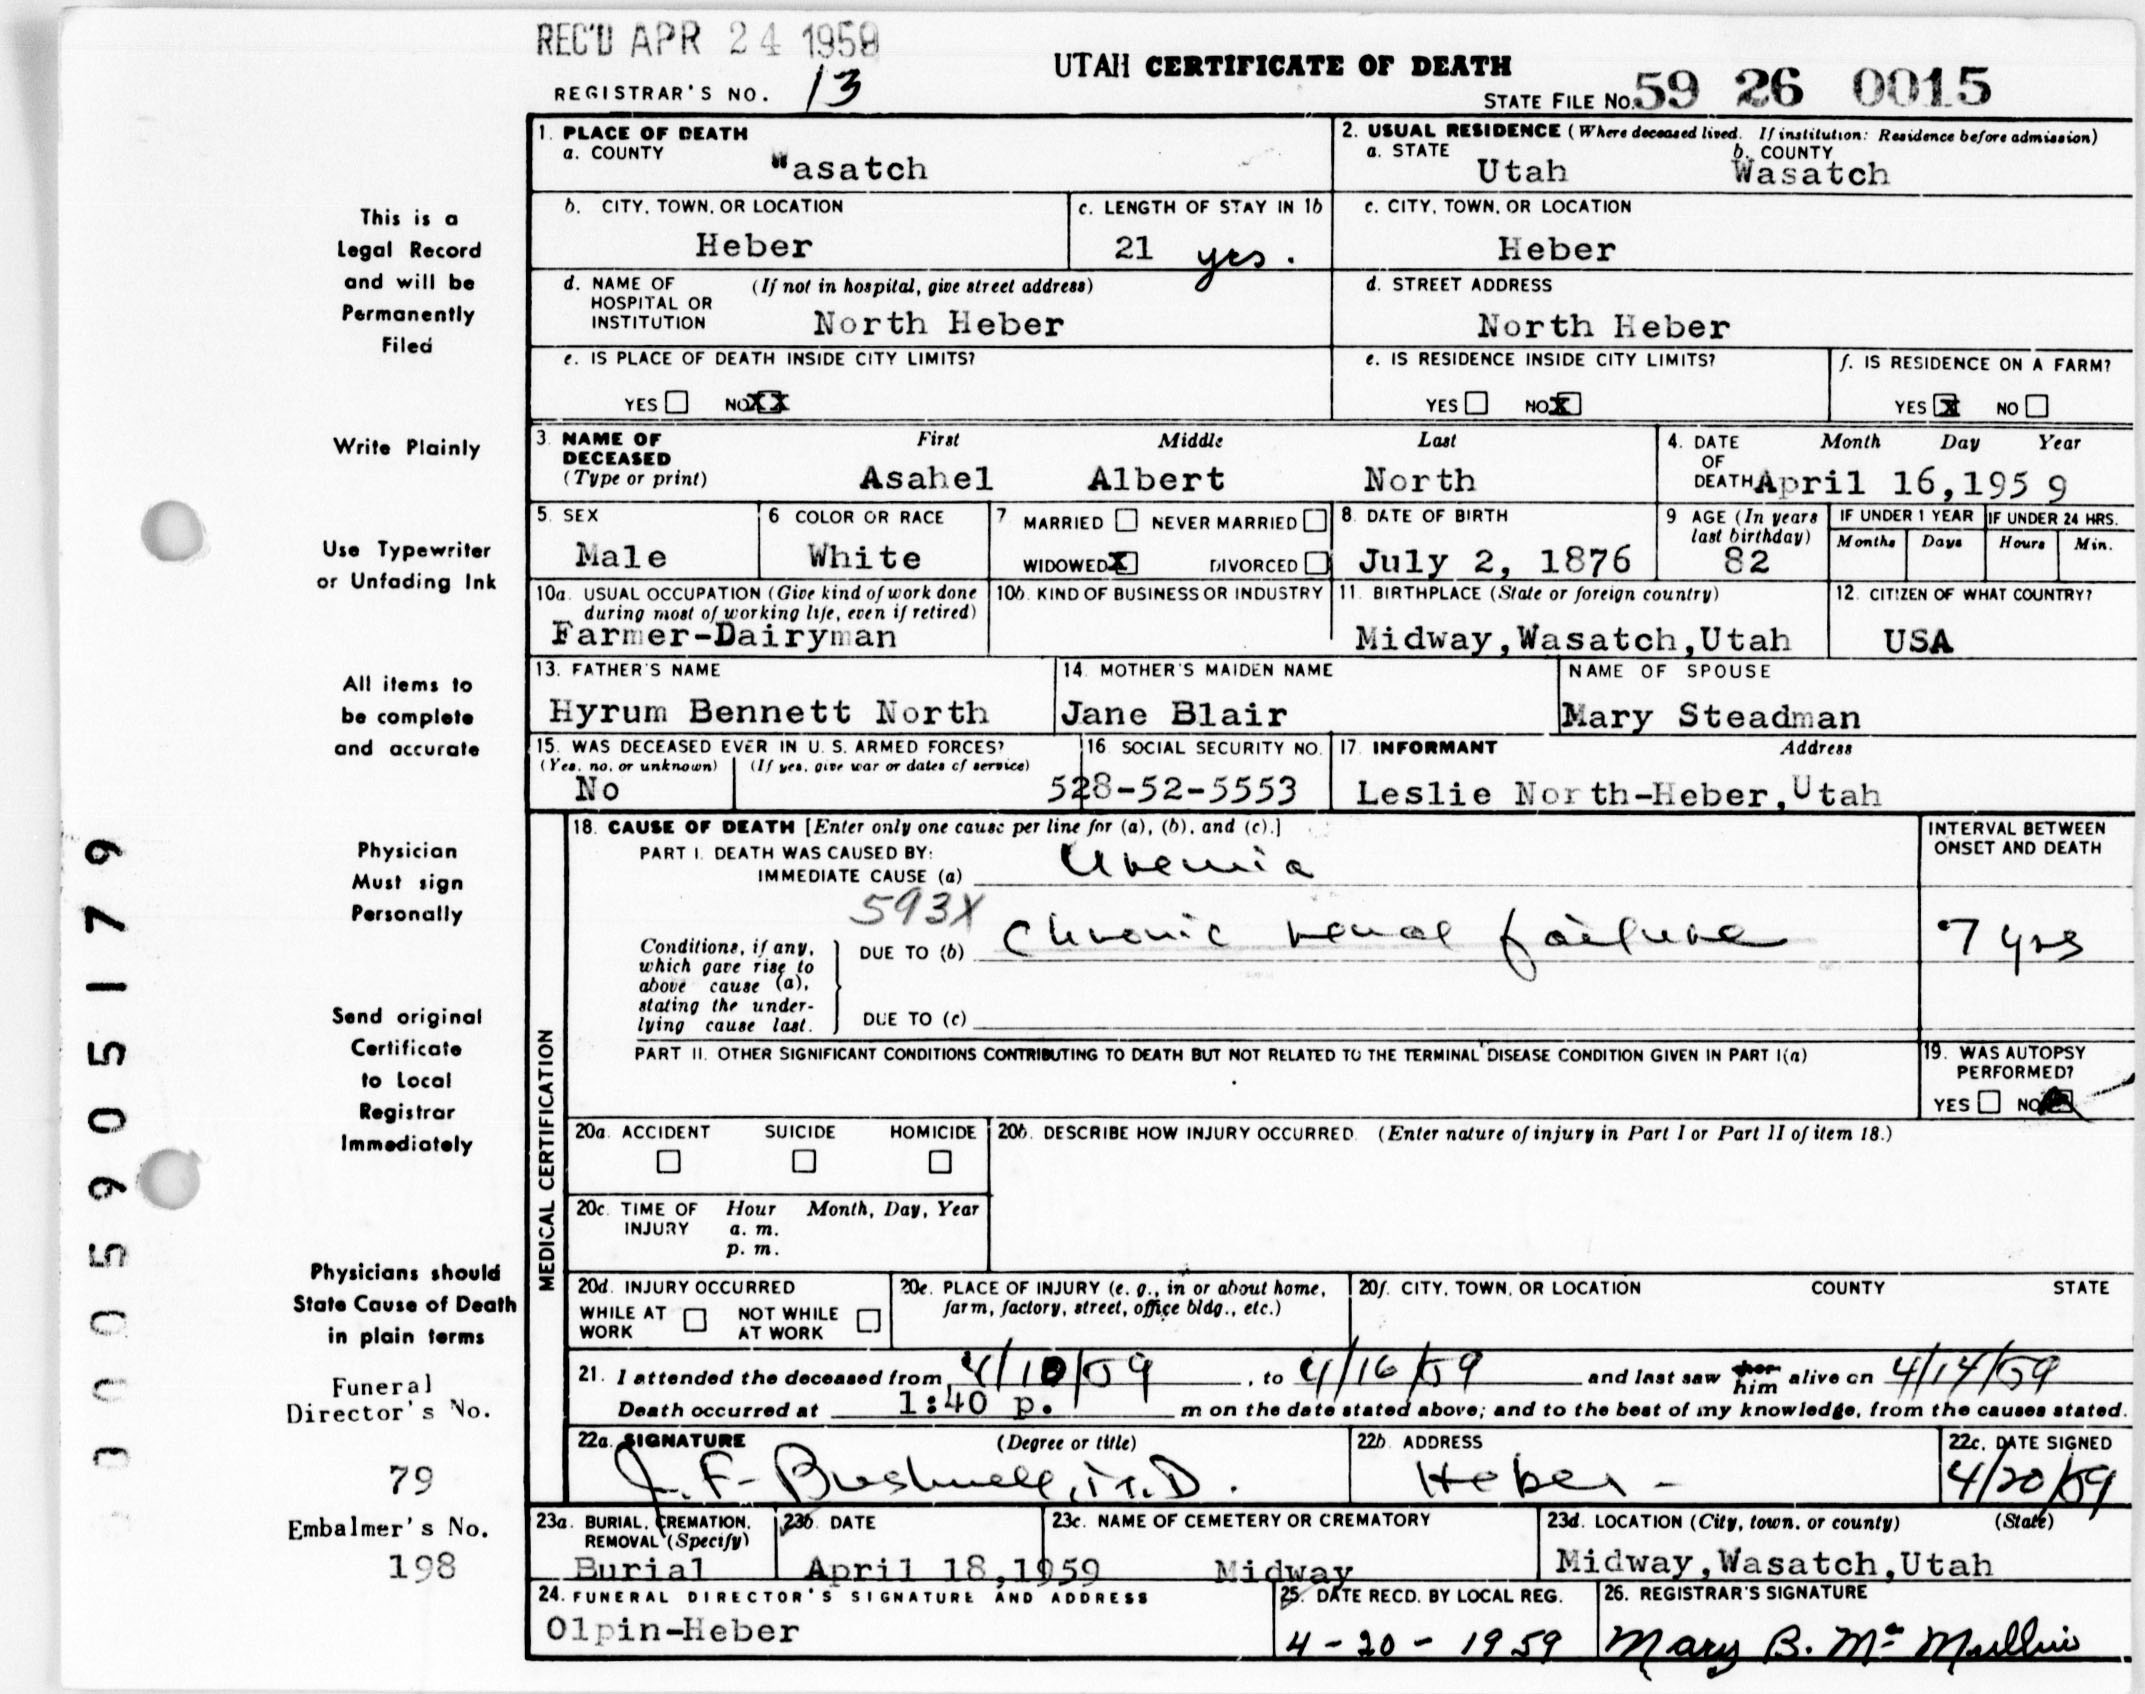 REC'D APR 24 1959
REGISTRAR'S NO. 13
UTAH CERTIFICATE OF DEATH
STATE FILE NO. 59 26 0015
1. PLACE OF DEATH
a. COUNTY
Wasatch
2. USUAL RESIDENCE (Where deceased lived. If institution: Residence before admission)
a. STATE
Utah
b. COUNTY
Wasatch
b. CITY, TOWN, OR LOCATION
Heber
c. LENGTH OF STAY IN 1b
21 yrs.
c. CITY, TOWN, OR LOCATION
Heber
d. NAME OF HOSPITAL OR INSTITUTION
(If not in hospital, give street address)
North Heber
d. STREET ADDRESS
North Heber
e. IS PLACE OF DEATH INSIDE CITY LIMITS?
YES NO XX
e. IS RESIDENCE INSIDE CITY LIMITS?
YES NO X
f. IS RESIDENCE ON A FARM?
YES X NO
3. NAME OF DECEASED
(Type or print)
First Middle Last
Asahel Albert North
4. DATE OF DEATH
Month Day Year
April 16,195 9
5. SEX
Male
6 COLOR OR RACE
White
7 MARRIED NEVER MARRIED
WIDOWED X DIVORCED
8. DATE OF BIRTH
July 2, 1876
9 AGE (In years last birthday)
82
IF UNDER 1 YEAR
Months Days
IF UNDER 24 HRS.
Hours Min.
10a. USUAL OCCUPATION (Give kind of work done
during most of working life, even if retired)
Farmer-Dairyman
10b. KIND OF BUSINESS OR INDUSTRY
11. BIRTHPLACE (State or foreign country)
Midway,Wasatch,Utah
12. CITIZEN OF WHAT COUNTRY?
USA
13. FATHER'S NAME
Hyrum Bennett North
14. MOTHER'S MAIDEN NAME
Jane Blair
NAME OF SPOUSE
Mary Steadman
15. WAS DECEASED EVER IN U. S. ARMED FORCES?
(Yes, no, or unknown) (If yes, give war or dates of service)
No
16 SOCIAL SECURITY NO.
528-52-5553
17. INFORMANT Address
Leslie North-Heber,Utah
MEDICAL CERTIFICATION
18. CAUSE OF DEATH [Enter only one cause per line for (a), (b), and (c).]
INTERVAL BETWEEN
ONSET AND DEATH
PART I. DEATH WAS CAUSED BY:
IMMEDIATE CAUSE (a) Uremia
593X
Conditions, if any,
which gave rise to
above cause (a),
stating the under-
lying cause last.
DUE TO (b) Chronic renal failure
7 yrs
DUE TO (c)
PART II. OTHER SIGNIFICANT CONDITIONS CONTRIBUTING TO DEATH BUT NOT RELATED TO THE TERMINAL DISEASE CONDITION GIVEN IN PART I(a)
19. WAS AUTOPSY PERFORMED?
YES NO
20a. ACCIDENT SUICIDE HOMICIDE
20b. DESCRIBE HOW INJURY OCCURRED. (Enter nature of injury in Part I or Part II of item 18.)
20c. TIME OF INJURY
Hour Month, Day, Year
a. m.
p. m.
20d. INJURY OCCURRED
WHILE AT WORK NOT WHILE AT WORK
20e. PLACE OF INJURY (e. g., in or about home,
farm, factory, street, office bldg., etc.)
20f. CITY, TOWN, OR LOCATION COUNTY STATE
21. I attended the deceased from 4/10/59, to 4/16/59 and last saw her him alive on 4/14/59
Death occurred at 1:40 p. m on the date stated above; and to the best of my knowledge, from the causes stated.
22a. SIGNATURE (Degree or title)
J. F. Bushnell, M.D.
22b. ADDRESS
Heber -
22c. DATE SIGNED
4/20/59
23a. BURIAL, CREMATION,
REMOVAL (Specify)
Burial
23b. DATE
April 18,1959
23c. NAME OF CEMETERY OR CREMATORY
Midway
23d. LOCATION (City, town, or county) (State)
Midway,Wasatch,Utah
24. FUNERAL DIRECTOR'S SIGNATURE AND ADDRESS
Olpin-Heber
25. DATE RECD. BY LOCAL REG.
4-20-1959
26. REGISTRAR'S SIGNATURE
Mary B. Mc Mullin
This is a
Legal Record
and will be
Permanently
Filed
Write Plainly
Use Typewriter
or Unfading Ink
All items to
be complete
and accurate
Physician
Must sign
Personally
Send original
Certificate
to Local
Registrar
Immediately
Physicians should
State Cause of Death
in plain terms
Funeral
Director's No.
79
Embalmer's No.
198
30005905179